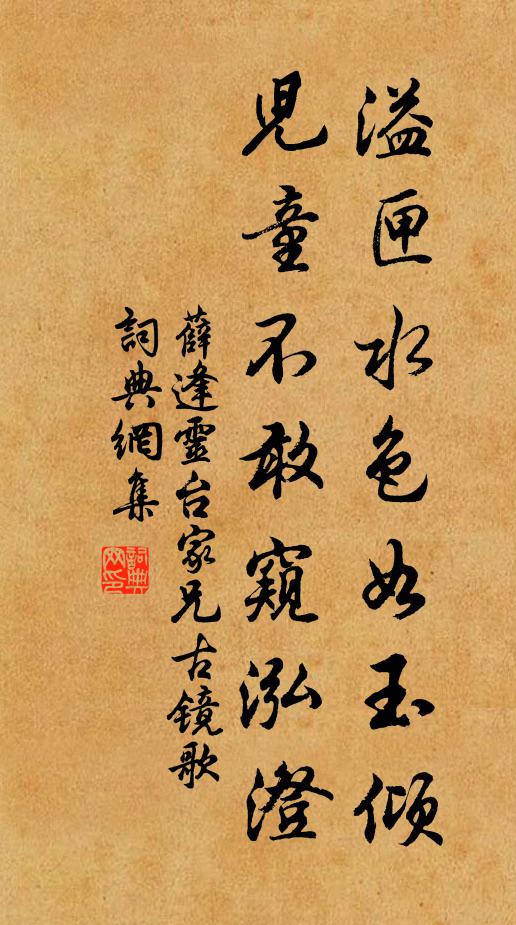 溢匣水色如玉傾
兒童不敢窺泓澄
薛逢靈台家兄古镜歌
詞典網集
詞典網印